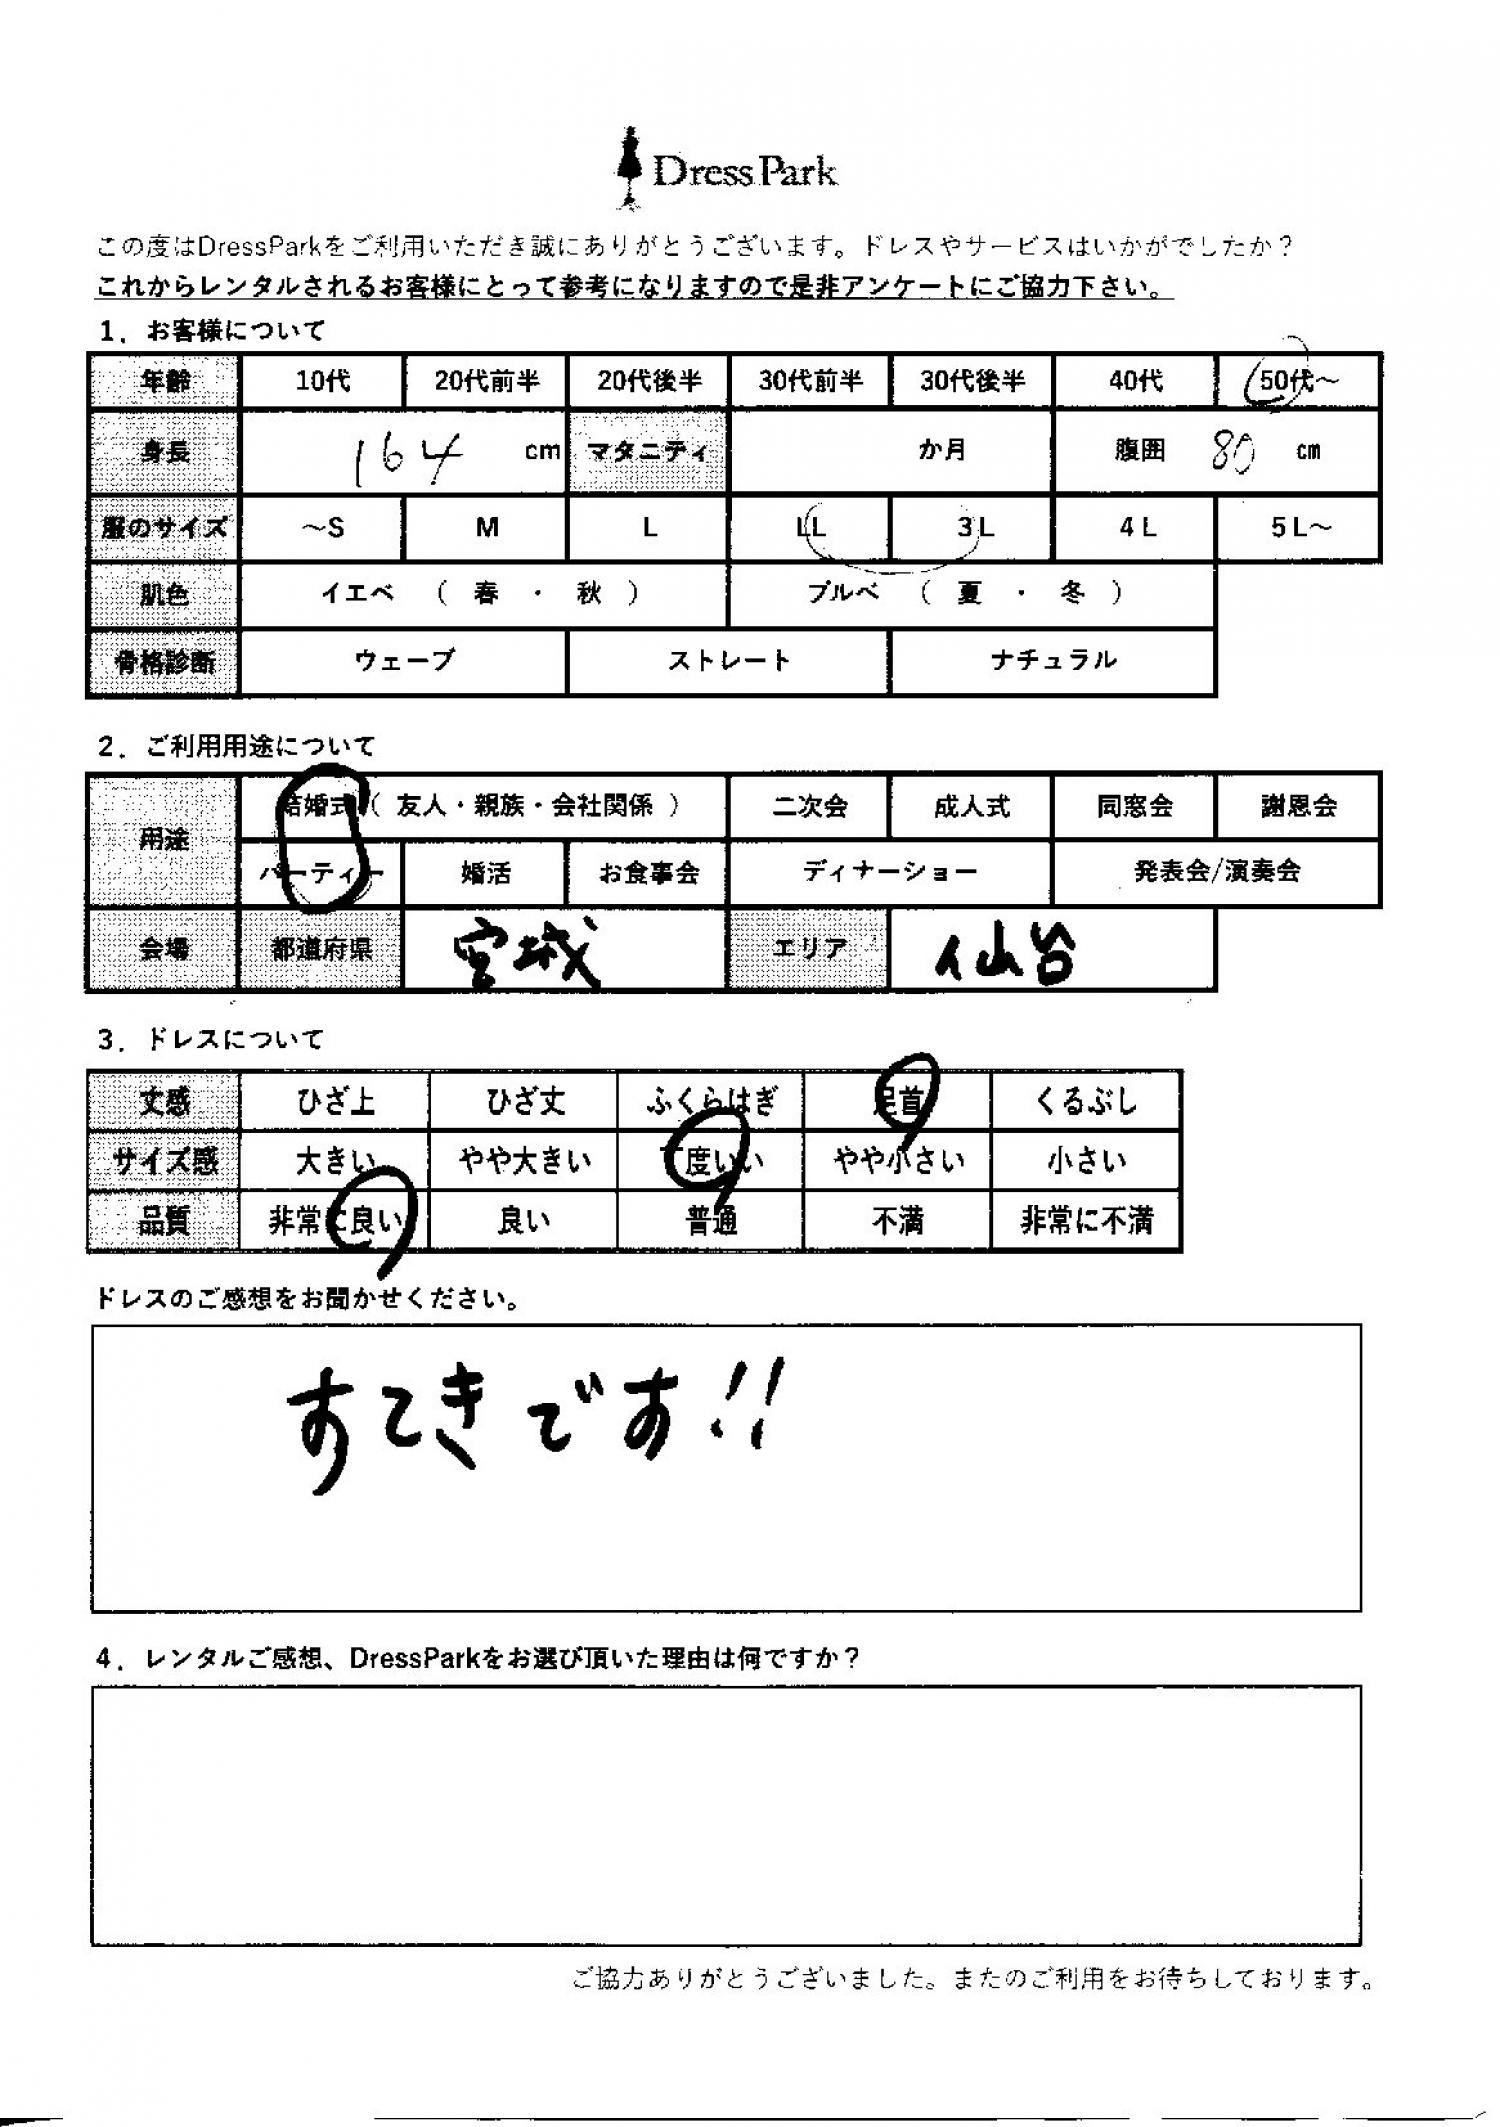 DressPark
この度はDressParkをご利用いただき誠にありがとうございます。ドレスやサービスはいかがでしたか？
これからレンタルされるお客様にとって参考になりますので是非アンケートにご協力下さい。
1．お客様について
年齢 10代 20代前半 20代後半 30代前半 30代後半 40代 50代～
身長 164 cm マタニティ か月 腹囲 80 cm
服のサイズ ～S M L LL 3L 4L 5L～
肌色 イエベ （ 春 ・ 秋 ） ブルベ （ 夏 ・ 冬 ）
骨格診断 ウェーブ ストレート ナチュラル
2．ご利用用途について
用途 結婚式（ 友人・親族・会社関係 ） 二次会 成人式 同窓会 謝恩会
パーティー 婚活 お食事会 ディナーショー 発表会/演奏会
会場 都道府県 宮城 エリア 仙台
3．ドレスについて
丈感 ひざ上 ひざ丈 ふくらはぎ 足首 くるぶし
サイズ感 大きい やや大きい 丁度いい やや小さい 小さい
品質 非常に良い 良い 普通 不満 非常に不満
ドレスのご感想をお聞かせください。
すてきです!!
4．レンタルご感想、DressParkをお選び頂いた理由は何ですか？
ご協力ありがとうございました。またのご利用をお待ちしております。